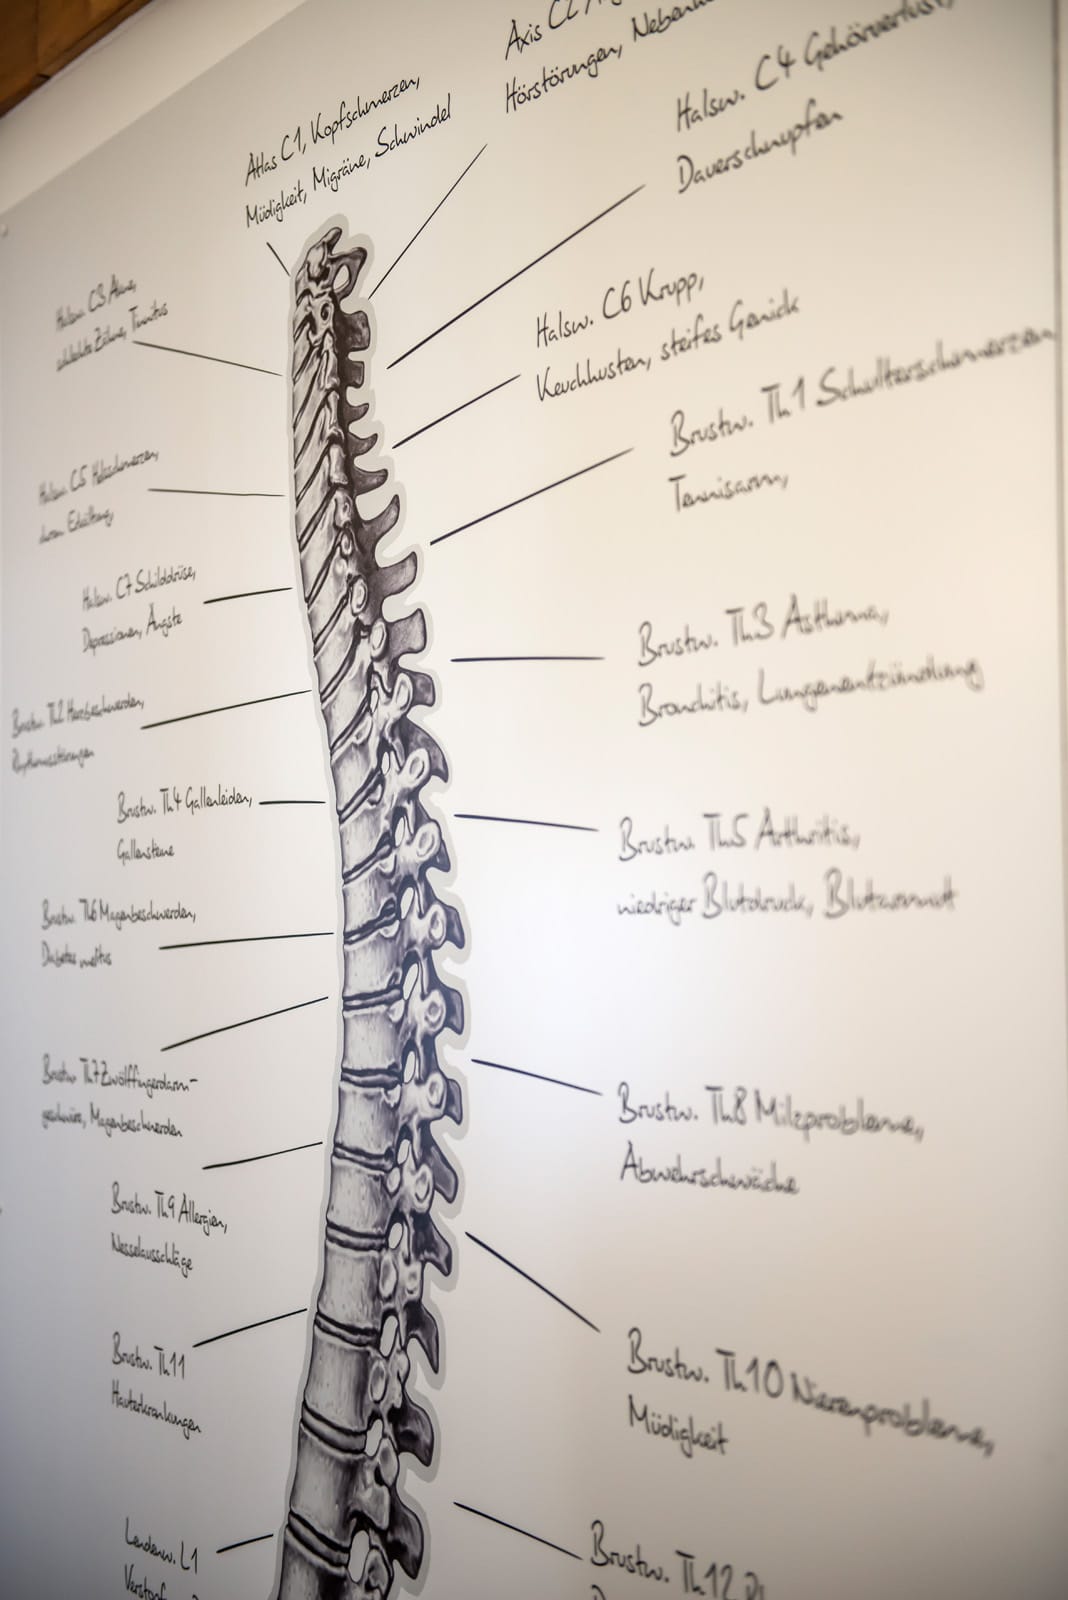 Atlas C1, Kopfschmerzen,
Müdigkeit, Migräne, Schwindel
Axis C2
Hörstörungen,
Halsw. C4 Gehörverlust,
Dauerschnupfen
Halsw. C3 Akne,
schlechte Zähne, Tinnitus
Halsw. C6 Krupp,
Keuchhusten, steifes Genick
Brustw. Th1 Schulterschmerzen
Tennisarm,
Halsw. C5 Halsschmerzen,
Halsw. C7 Schilddrüse,
Depressionen, Ängste
Brustw. Th3 Asthma,
Bronchitis, Lungenentzündung
Brustw. Th2 Herzbeschwerden,
Rhythmusstörungen
Brustw. Th4 Gallenleiden,
Gallensteine
Brustw. Th5 Arthritis,
niedriger Blutdruck, Blutarmut
Brustw. Th6 Magenbeschwerden,
Diabetes
Brustw. Th7 Zwölffingerdarm-
geschwüre, Magenbeschwerden
Brustw. Th8 Milzprobleme,
Abwehrschwäche
Brustw. Th9 Allergien,
Nesselausschläge
Brustw. Th10 Nierenprobleme,
Müdigkeit
Brustw. Th11
Hauterkrankungen
Lendenw. L1
Brustw. Th12